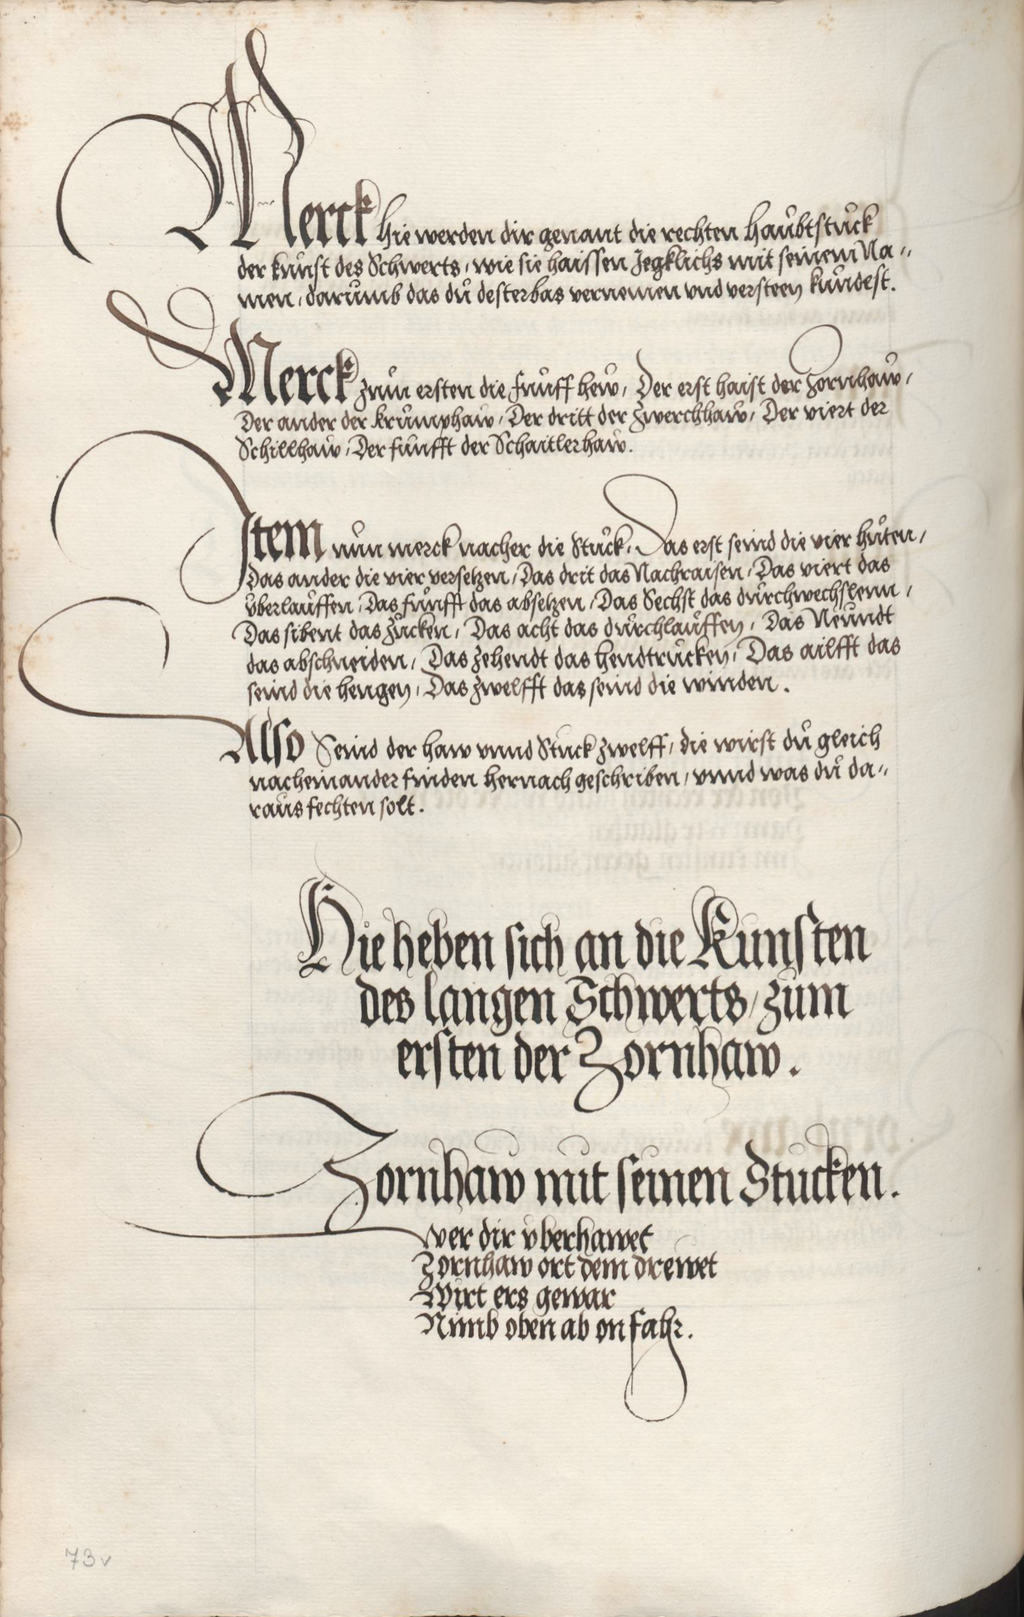 Merck hie werden dir genant die rechten haubtstuck
der kunst des Schwerts, wie sie haissen Jegklichs mit seinem Na-
men, darumb das du desterbas vernemen vnd versteen kundest.
Merck zun ersten die funff hew, Der erst haist der Zornhaw,
Der ander der Krumphaw, Der dritt der Zwerchhaw, Der viert der
Schillhaw, Der funfft der Schaitlerhaw.
Item nun merck nacher die Stuck, Das erst seind die vier huten,
Das ander die vier versetzen, Das drit das Nachraisen, Das viert das
vberlauffen, Das funfft das absetzen, Das Sechst das durchwechslenn,
Das sibent das Zucken, Das acht das durchlauffen, Das Neundt
das abschneiden, Das Zehendt das hendtrucken, Das ailfft das
seind die hengen, Das Zwelfft das seind die winden.
Also Seind der haw vnnd Stuck zwelff, die wirst du gleich
nacheinander finden hernach geschriben, vnnd was du da-
raus fechten solt.
Hie heben sich an die Kunsten
des langen Schwerts, zum
ersten der Zornhaw.
Zornhaw mit seinen Stucken.
Wer dir vberhawet
Zornhaw ort dem drewet
Wirt ers gewar
Nimb oben ab on fahr.
73v